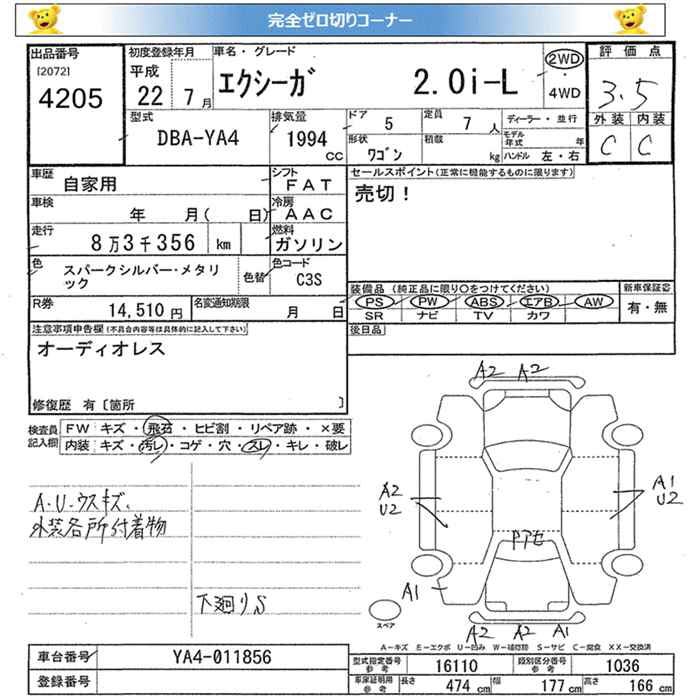 完全ゼロ切りコーナー
出品番号
[2072]
4205
初度登録年月
平成
22 7 月
車名・グレード
エクシーガ 2.0i-L
2WD
・
4WD
評価点
3.5
外装 内装
C C
型式
DBA-YA4
排気量
1994
cc
ドア 5
定員 7 人
形状
ワゴン
積載
kg
ディーラー・並行
モデル年式 年
ハンドル 左・右
車歴
自家用
シフト
FAT
車検
年 月( 日)
冷房
AAC
走行
8万3千356 km
燃料
ガソリン
色
スパークシルバー・メタリック
色替
色コード
C3S
R券
14,510 円
名変通知期限
月 日
セールスポイント(正常に機能するものに限ります)
売切!
装備品 (純正品に限り○をつけてください)
PS PW ABS エアB AW
SR ナビ TV カワ
新車保証書
有・無
後日品
注意事項申告欄(不具合内容等は具体的に記入して下さい)
オーディオレス
修復歴 有〔箇所 〕
検査員記入欄
FW キズ・飛石・ヒビ割・リペア跡・×要
内装 キズ・汚レ・コゲ・穴・スレ・キレ・破レ
A・U・ウスキズ、
外装各所付着物
下廻りS
A2 A2
A2
U2
A1
U2
Pアセ
A1
スペア
A2 A2 A1
A-キズ E-エクボ U-凹み W-補修跡 S-サビ C-腐食 XX-交換済
車台番号
YA4-011856
登録番号
型式指定番号
参考
16110
類別区分番号
参考
1036
車庫証明用
参考
長さ 474 cm
幅 177 cm
高さ 166 cm